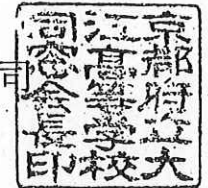 司
京都府立大
江高等学校
同窓会長印